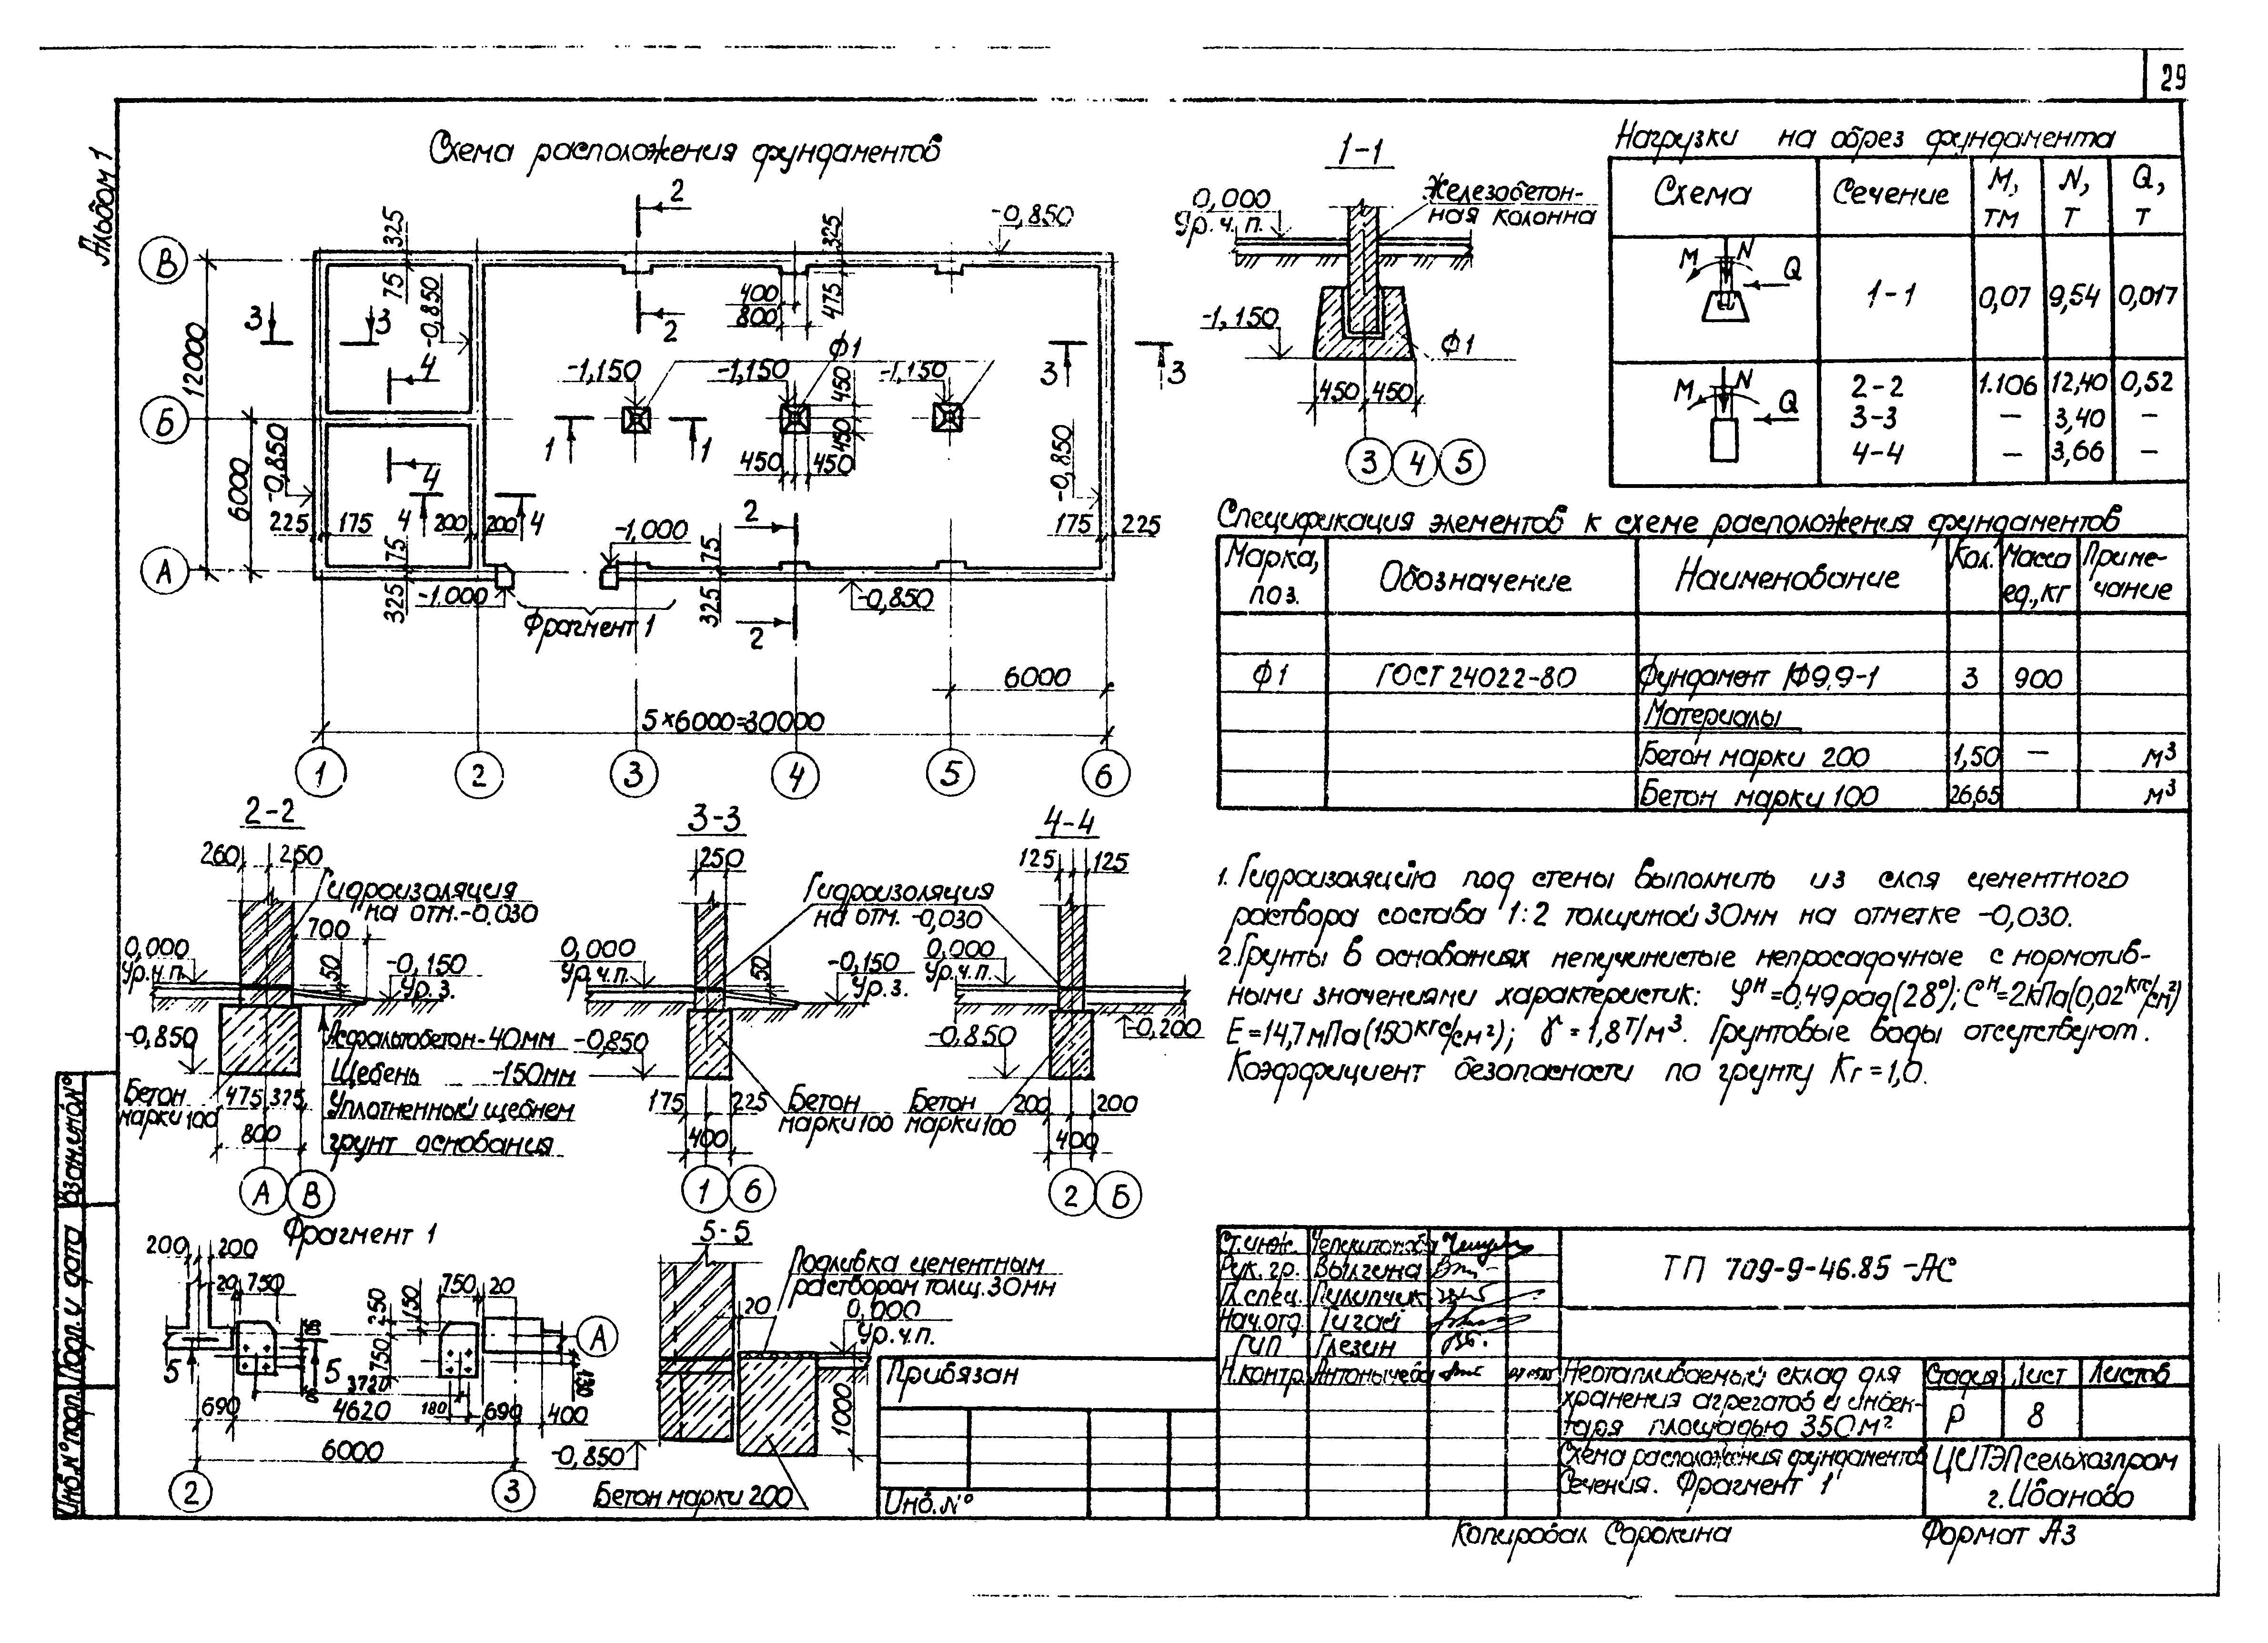 29
Альбом 1
Схема расположения фундаментов
2
-0,850
325
325
75
-0,850
В
400
800
475
2
3
3
Ф1
12000
3
3
4
-1,150
-1,150
-1,150
450
Б
1
1
450
450
450
-0,850
-0,850
4
6000
225
175
4
200
200
4
-1,000
2
175
225
А
75
325
-1.000
75
325
-0,850
Фрагмент 1
2
6000
5×6000=30000
1
2
3
4
5
6
1-1
0,000
Ур.ч.п.
Железобетон-
ная колонна
-1,150
Ф1
450
450
3
4
5
Нагрузки на обрез фундамента
Схема
Сечение
М,
тм
N,
т
Q,
т
M
N
Q
1-1
0,07
9,54
0,017
M
N
Q
2-2
1.106
12,40
0,52
3-3
—
3,40
—
4-4
—
3,66
—
Спецификация элементов к схеме расположения фундаментов
Марка,
поз.
Обозначение
Наименование
Кол.
Масса
ед.,кг
Приме-
чание
Ф1
ГОСТ 24022-80
Фундамент 1Ф9.9-1
3
900
Материалы
Бетон марки 200
1,50
—
м³
Бетон марки 100
26,65
м³
2-2
260
250
Гидроизоляция
на отм.-0,030
700
0,000
Ур.ч.п.
50
-0,150
Ур.з.
-0,850
Асфальтобетон-40мм
Щебень -150мм
Уплотненный щебнем
грунт основания
Бетон
марки100
475
325
800
А
В
3-3
250
Гидроизоляция
на отм. -0,030
0,000
Ур.ч.п.
50
-0,150
Ур.з.
-0,850
175
225
Бетон
марки100
400
1
6
4-4
125
125
0,000
Ур.ч.п.
-0,850
-0,200
Бетон
марки100
200
200
400
2
Б
1. Гидроизоляцию под стены выполнить из слоя цементного
раствора состава 1:2 толщиной 30мм на отметке -0,030.
2. Грунты в основаниях непучинистые непросадочные с норматив-
ными значениями характеристик: φᴴ=0,49рад(28°); Cᴴ=2кПа(0,02кгс/см²)
E=14,7мПа(150кгс/см²); γ=1,8т/м³. Грунтовые воды отсутствуют.
Коэффициент безопасности по грунту Кг=1,0.
Фрагмент 1
200
200
20
750
750
20
250
150
А
5
5
750
3720
690
4620
180
690
400
6000
2
3
5-5
Подливка цементным
раствором толщ.30мм
20
0,000
Ур.ч.п.
1000
-0,850
Бетон марки 200
Привязан
Инв.№
Ст.инж.
Рук. гр.
Вылгина
Гл.спец.
Пулипчик
Нач.отд.
Гигай
ГИП
Глезин
Н.контр.
Антонычева
ТП 709-9-46.85 -АС
Неотапливаемый склад для
хранения агрегатов и инвен-
таря площадью 350м²
Стадия
Лист
Листов
Р
8
Схема расположения фундаментов
Сечения. Фрагмент 1
ЦИТЭПсельхозпром
г.Иваново
Взам.инв.№
Подп. и дата
Инв.№подл.
Копировал Сорокина
Формат А3